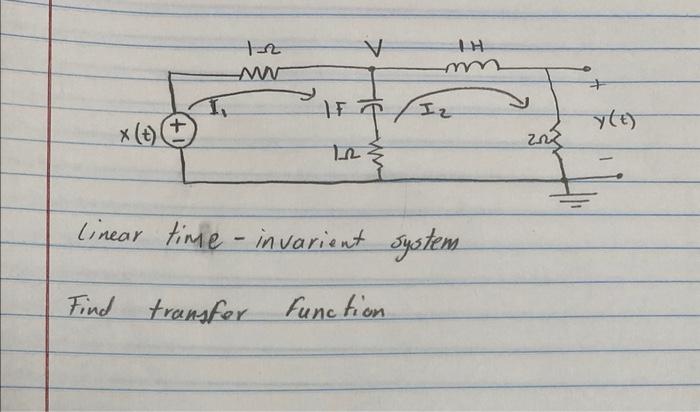 1Ω V 1H
+
I₁ 1F I₂
x(t) + − 2Ω y(t)
1Ω −
Linear time - invarient system
Find transfer function